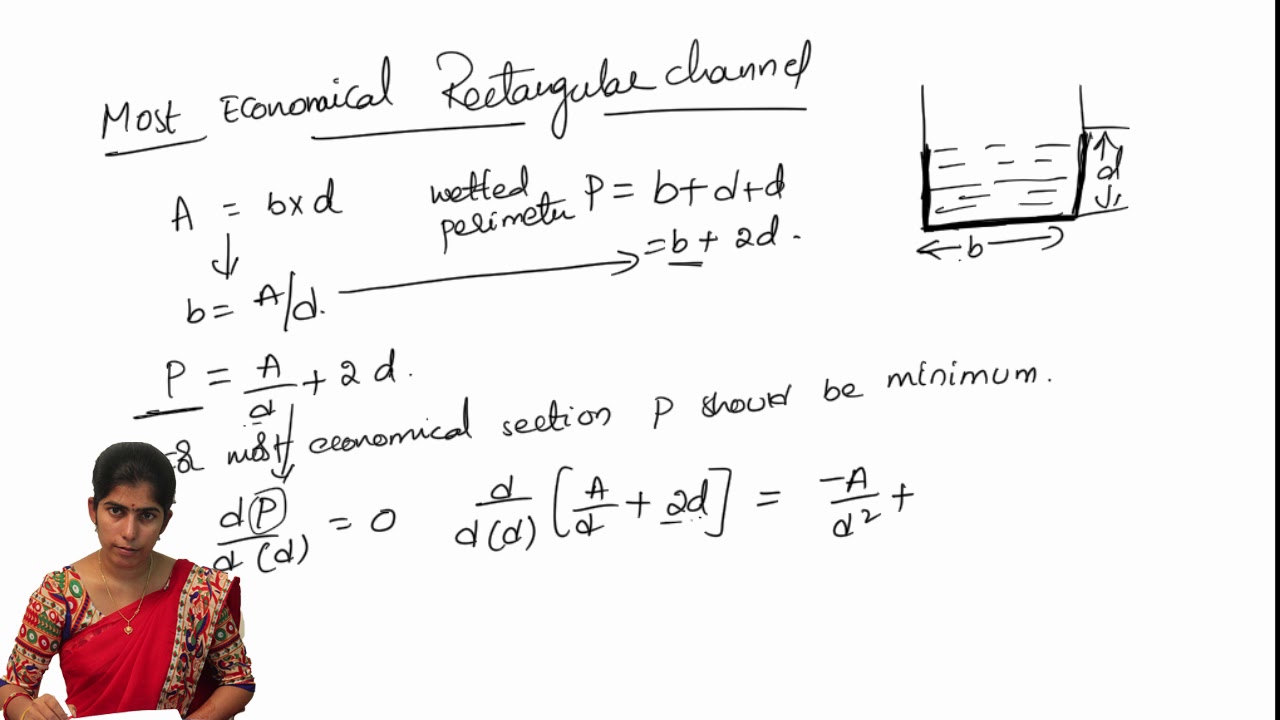 Most Economical Rectangular channel
A = b×d
wetted perimeter P = b+d+d
= b + 2d.
b = A/d.
P = A/d + 2d.
most economical section P should be minimum.
d(P)/d(d) = 0
d/d(d) [A/d + 2d] = -A/d² +
d
b